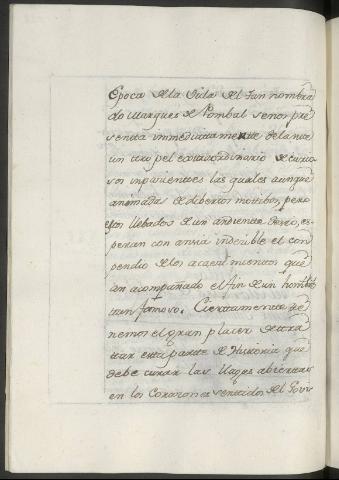 Epoca de la Vida del tan nombra
do Marques de Pombal se nos pre
senta immediatamente delante
un tropel extraordinario de curio
sos inpasientes las quales aunque
animadas de dibersos motibos, pero
todos llebados de un ardiente deseo, es-
peran con ansia indesible el con
pendio de los acaesimientos que
an acompañado el fin de un hombre
tan famoso. Ciertamente te-
nemos el gran placer de tra
tar esta parte de Historia que
debe curar las llagas abiertas
en los Corazones sentidos del Povr